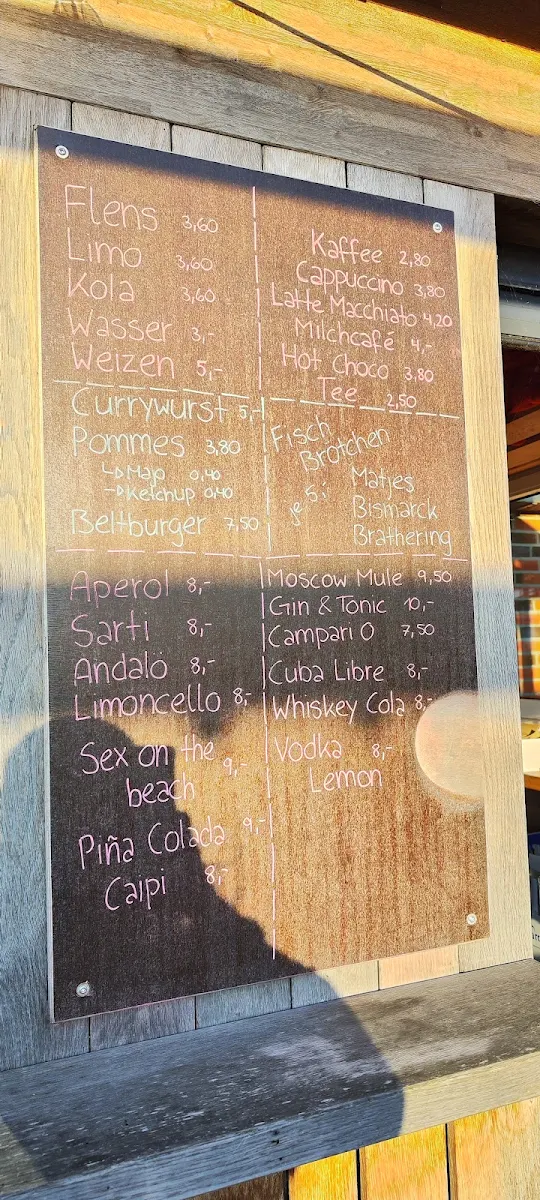 Flens 3,60
Limo 3,60
Kola 3,60
Wasser 3,-
Weizen 5,-
Kaffee 2,80
Cappuccino 3,80
Latte Macchiato 4,20
Milchcafé 4,-
Hot Choco 3,80
Tee 2,50
Currywurst 5,-
Pommes 3,80
Majo 0,40
Ketchup 0,40
Beltburger 7,50
Fisch
Brötchen
je 5,-
Matjes
Bismarck
Brathering
Aperol 8,-
Sarti 8,-
Andalö 8,-
Limoncello 8,-
Sex on the
beach 9,-
Piña Colada 9,-
Caipi 8,-
Moscow Mule 9,50
Gin & Tonic 10,-
Campari O 7,50
Cuba Libre 8,-
Whiskey Cola 8,-
Vodka 8,-
Lemon